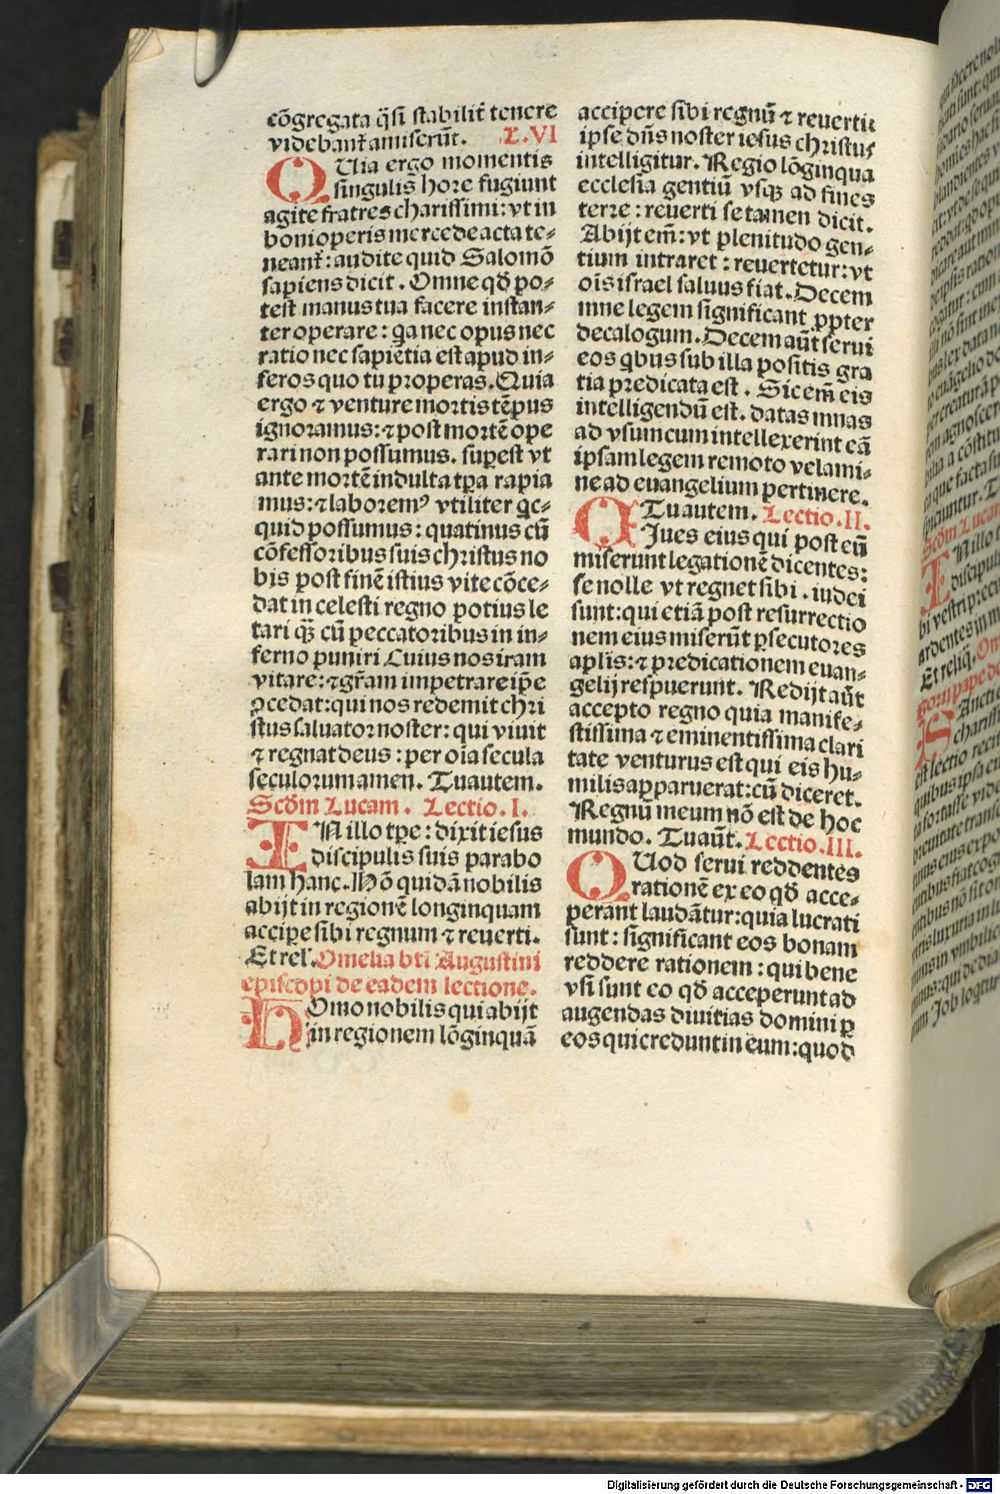 cōgregata q̄si stabilit̄ tenere
videbant̄ amiserūt. L.VI
QUia ergo momentis
singulis hore fugiunt
agite fratres charissimi: vt in
boni operis mercede acta te-
neant̄: audite quid Salomō
sapiens dicit. Omne qd̄ po-
test manus tua facere instan-
ter operare: qa nec opus nec
ratio nec sapiētia est apud in-
feros quo tu properas. Quia
ergo ⁊ venture mortis tēpus
ignoramus: ⁊ post mortē ope
rari non possumus. supest vt
ante mortē indulta tpa rapia
mus: ⁊ laboremꝰ vtiliter qc-
quid possumus: quatinus cū
cōfessoribus suis christus no
bis post finē istius vite cōce-
dat in celesti regno potius le
tari qꝫ cū peccatoribus in in-
ferno puniri Cuius nos iram
vitare: ⁊ gr̄am impetrare ip̄e
ꝓcedat: qui nos redemit chri
stus saluator noster: qui viuit
⁊ regnat deus: per oīa secula
seculorum amen. Tu autem.
Scd̄m Lucam. Lectio. I.
IN illo tp̄e: dixit iesus
discipulis suis parabo
lam hanc. Hō quidā nobilis
abijt in regionē longinquam
accipe sibi regnum ⁊ reuerti.
Et rel'. Omelia bti Augustini
episcopi de eadem lectione.
HOmo nobilis qui abijt
in regionem lōginquā
accipere sibi regnū ⁊ reuerti
ipse dn̄s noster iesus christus
intelligitur. Regio lōginqua
ecclesia gentiū vsqꝫ ad fines
terre: reuerti se tamen dicit.
Abijt em̄: vt plenitudo gen-
tium intraret: reuertetur: vt
oīs israel saluus fiat. Decem
mne legem significant ꝓpter
decalogum. Decem aūt serui
eos qbus sub illa positis gra
tia predicata est. Sic em̄ eis
intelligendū est. datas mnas
ad vsum cum intellexerint eā
ipsam legem remoto velami-
ne ad euangelium pertinere.
Tu autem. Lectio. II.
CIues eius qui post eū
miserunt legationē dicentes:
se nolle vt regnet sibi. iudei
sunt: qui etiā post resurrectio
nem eius miserūt ꝑsecutores
aplis: ⁊ predicationem euan-
gelij respuerunt. Redijt aūt
accepto regno quia manife-
stissima ⁊ eminentissima clari
tate venturus est qui eis hu-
milis apparuerat: cū diceret.
Regnū meum nō est de hoc
mundo. Tu aūt. Lectio. III.
QUod serui reddentes
rationē ex eo qd̄ acce-
perant laudātur: quia lucrati
sunt: significant eos bonam
reddere rationem: qui bene
vsi sunt eo qd̄ acceperunt ad
augendas diuitias domini ꝑ
eos qui credunt in eum: quod
Digitalisierung gefördert durch die Deutsche Forschungsgemeinschaft - DFG